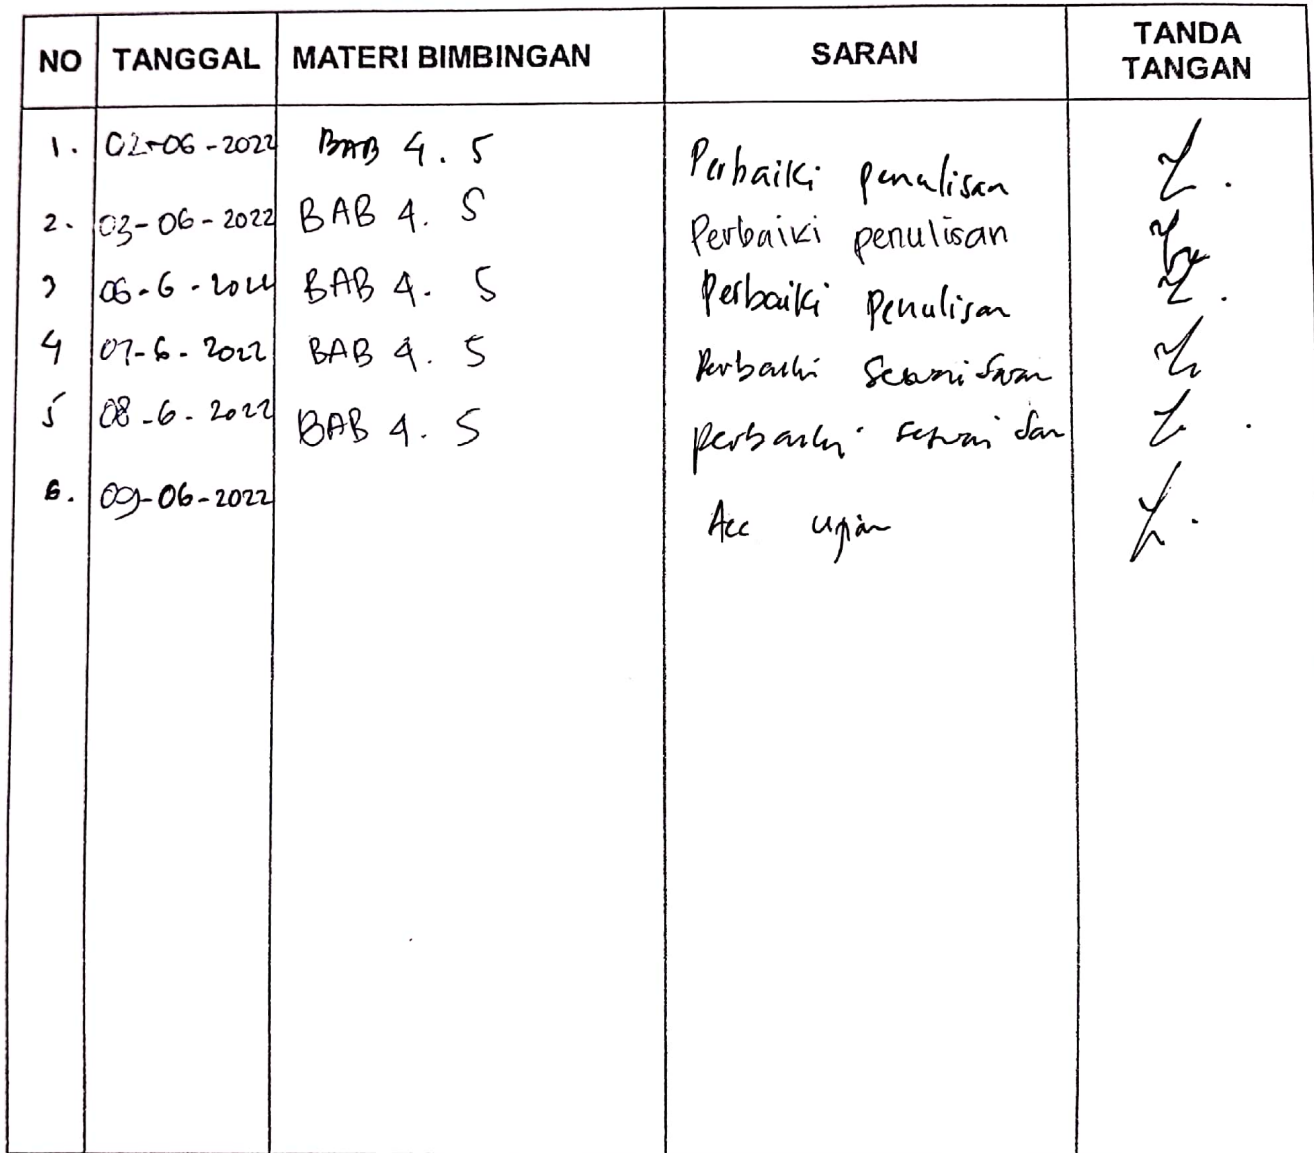 NO TANGGAL MATERI BIMBINGAN SARAN TANDA TANGAN
1. 02-06-2022 BAB 4. 5 Perbaiki penulisan
2. 03-06-2022 BAB 4. 5 Perbaiki penulisan
3 06-6-2022 BAB 4. 5 Perbaiki Penulisan
4 07-6-2022 BAB 4. 5 Perbaiki Sesuai Saran
5 08-6-2022 BAB 4. 5 perbaiki sesuai
6. 09-06-2022 Acc ujian